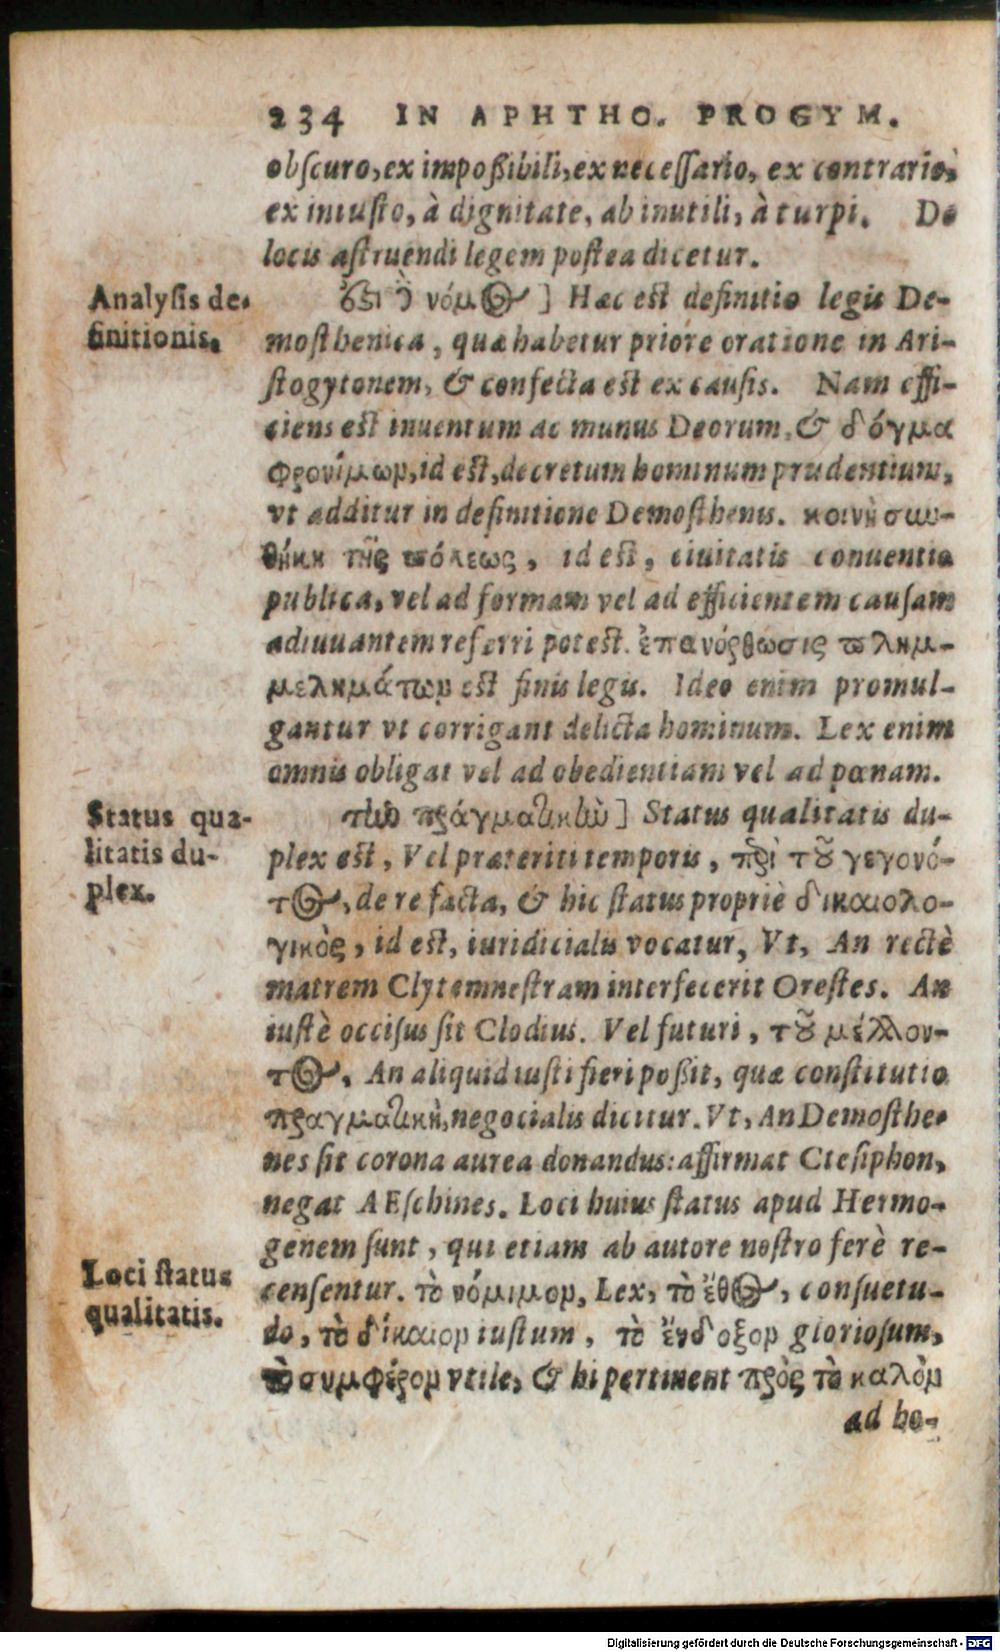 234 IN APHTHO. PROGYM.
obſcuro, ex impoßibili, ex neceſſario, ex contrario,
ex iniuſto, à dignitate, ab inutili, à turpi. De
locis aſtruendi legem poſtea dicetur.
Analyſis de-
finitionis.
ἔστι δὲ νόμος] Hæc est definitio legis De-
moſthenica, quæ habetur priore oratione in Ari-
ſtogytonem, & confecta est ex cauſis. Nam effi-
ciens est inuentum ac munus Deorum, & δόγμα
φρονίμων, id est, decretum hominum prudentium,
vt additur in definitione Demoſthenis. κοινὴ συν-
θήκη τῆς πόλεως, id est, ciuitatis conuentio
publica, vel ad formam vel ad efficientem cauſam
adiuuantem referri potest. ἐπανόρθωσις πλημ-
μελημάτων est finis legis. Ideo enim promul-
gantur vt corrigant delicta hominum. Lex enim
omnis obligat vel ad obedientiam vel ad pœnam.
Status qua-
litatis du-
plex.
τὴν πραγματικὴν] Status qualitatis du-
plex est, Vel præteriti temporis, περὶ τοῦ γεγονό-
τος, de re facta, & hic ſtatus propriè δικαιολο-
γικὸς, id est, iuridicialis vocatur, Vt, An rectè
matrem Clytemneſtram interfecerit Oreſtes. An
iuſtè occiſus ſit Clodius. Vel futuri, τοῦ μέλλον-
τος, An aliquid iuſti fieri poßit, quæ conſtitutio
πραγματικὴ, negocialis dicitur. Vt, An Demoſthe-
nes ſit corona aurea donandus: affirmat Cteſiphon,
negat AEſchines. Loci huius ſtatus apud Hermo-
genem ſunt, qui etiam ab autore noſtro ferè re-
Loci ſtatus
qualitatis.
cenſentur. τὸ νόμιμον, Lex, τὸ ἔθος, conſuetu-
do, τὸ δίκαιον iuſtum, τὸ ἔνδοξον glorioſum,
τὸ συμφέρον vtile, & hi pertinent πρὸς τὸ καλὸν
ad ho-
Digitalisierung gefördert durch die Deutsche Forschungsgemeinschaft - DFG